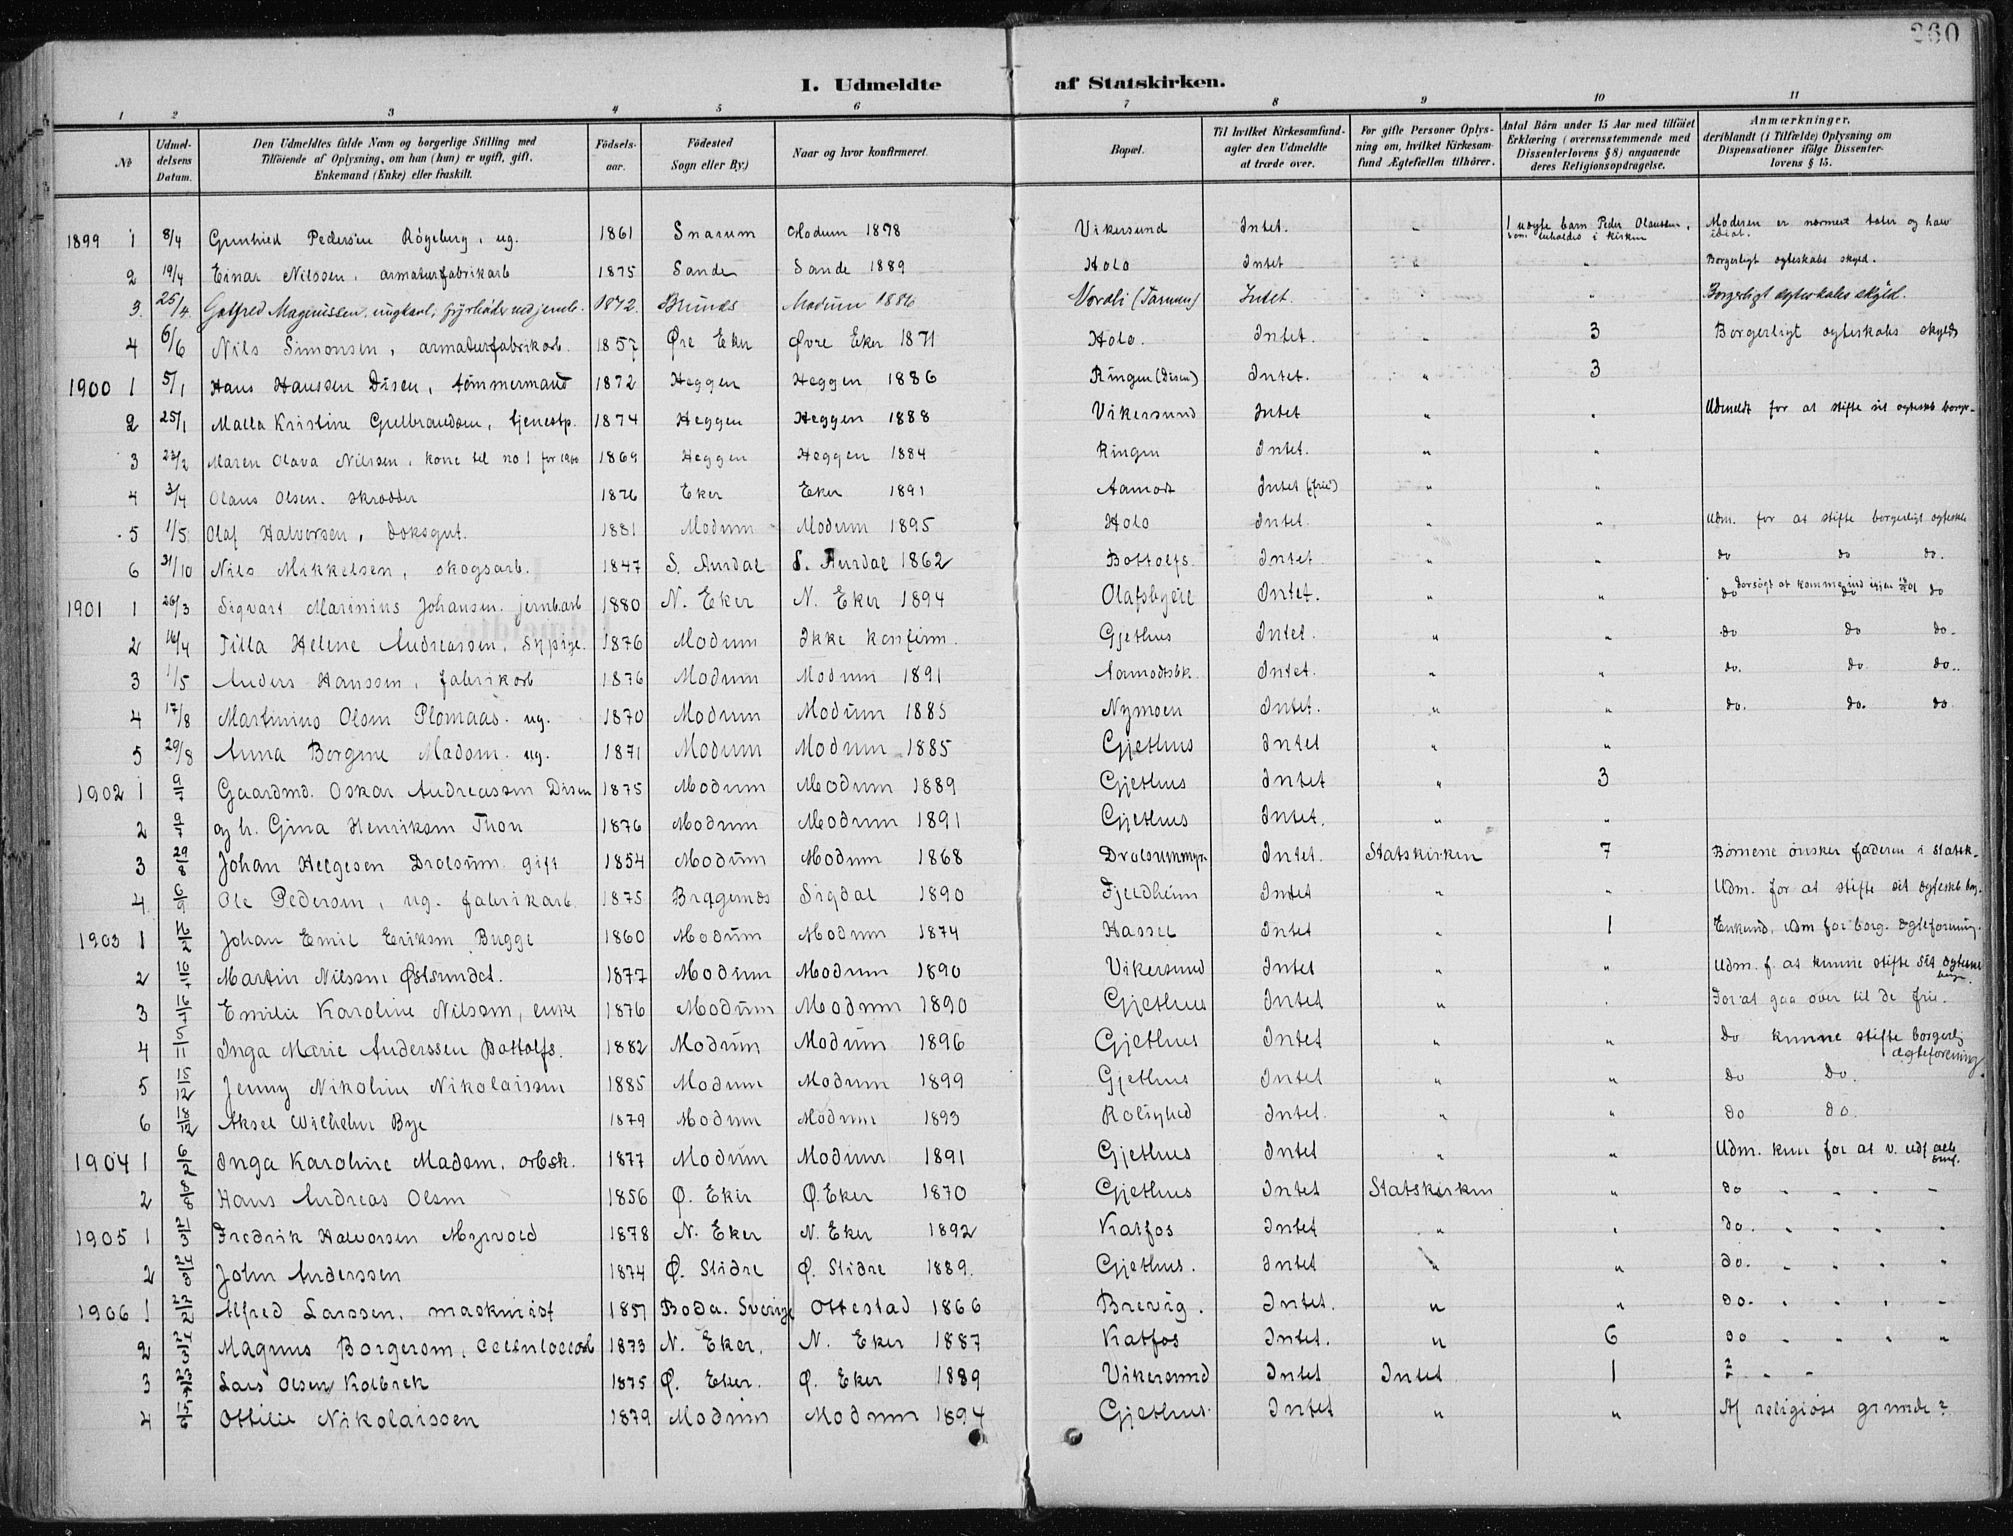 260
I. Udmeldte af Statskirken.
1 2 3 4 5 6 7 8 9 10 11
No
Udmeldelsens Datum.
Den Udmeldtes fulde Navn og borgerlige Stilling med Tilföiende af Oplysning, om han (hun) er ugift, gift, Enkemand (Enke) eller fraskilt.
Födselsaar.
Födested Sogn eller By.)
Naar og hvor konfirmeret.
Bopæl.
Til hvilket Kirkesamfund agter den Udmeldte at træde over.
For gifte Personer Oplysning om, hvilket Kirkesamfund Ægtefællen tilhörer.
Antal Börn under 15 Aar med tilföiet Erklæring (overensstemmende med Dissenterlovens § 8) angaaende deres Religionsopdragelse.
Anmærkninger, deriblandt (i Tilfælde) Oplysning om Dispensationer ifölge Dissenterlovens § 15.
1899 1 8/4 Gunhild Pedersen Røgeberg, ug. 1861 Snarum Modum 1878 Vikersund Intet. " 1 uægte barn Peder Olaussen, som beholdes i kirken Moderen er nærmest tater og halv idiot.
2 19/4 Einar Nilssen, armaturfabrikarb 1875 Sande Sande 1889 Holo Intet " " Borgerligt ægteskabs skyld.
3. 25/4 Gotfred Magnussen, ungkarl, fyrbøder ved jernb. 1872. Modum 1886 Nordli Intet. " " Borgerligt ægteskabs skyld.
4 6/6 Nils Simonsen, armaturfabrikarb. 1857 Øvre Eker Øvre Eker 1871 Holo. Intet. " 3 Borgerligt ægteskabs skyld
1900 1 5/1 Hans Hanssen Disen, tømmermand 1872 Heggen Heggen 1886 Ringen (Disen) Intet. " 3
2 25/1 Malla Kristine Gulbrandsen, tjenestp. 1874 Heggen Heggen 1888 Vikersund Intet " " Udmeldt for at stifte sit ægtesk borgr.
3 22/2 Maren Olava Nilssen, kone til no 1 for 1900 1869 Heggen Heggen 1884 Ringen Intet. " "
4 3/4 Olaus Olsen. skrædder 1876 Eker Eker 1891 Aamodt Intet (frie) " "
5 1/5 Olaf Halvorsen, 1881 Modum Modum 1895 Holo Intet. " " Udm. for at stifte borgerligt ægtesk
6 31/10 Nils Mikkelsen, skogsarb. 1847 S. Aurdal S. Aurdal 1862 Bottolfs. Intet. " " do do do.
1901 1 26/3 Sigvart Marinius Johansen. jernbarb 1880 N. Eker N. Eker 1894 Olafsbyeie Intet. " " do do do
2 16/4 Tilla Helene Andreassen, sypige. 1876 Modum Ikke konfirm. Gjethus Intet. " " do do do.
3 1/5 Anders Hanssen, fabrikarb 1876 Modum Modum 1891 Aamodtsbk. Intet. " " do. do do.
4 17/8 Martinius Olsen Plomaas. ug. 1870 Modum Modum 1885 Nymoen Intet. " " do. do. do
5 29/8 Anna Borgine Madsen. ug. 1871 Modum Modum 1885 Gjethus Intet " "
1902 1 9/7 Gaardmd. Oskar Andreassen Disen 1875 Modum Modum 1889 Gjethus Intet " 3
2 9/7 og h. Gina Henriksen Thon 1876 Modum Modum 1891 Gjethus Intet. " "
3 29/8 Johan Helgesen Drolsum. gift 1854 Modum Modum 1868 Drolsummyr. Intet. Statskirken 7 Børnene ønsker faderen i statsk.
4. 6/9 Ole Pedersen, ug. fabrikarb. 1875 Bragernes Sigdal 1890 Fjeldheim Intet " " Udm. for at stifte sit ægteskb bog.
1903 1 16/2 Johan Emil Eriksen Bugge 1860 Modum Modum 1874 Hassel Intet " 1 Enkemd, udm for borg. ægteforening.
2 Martin Nilssen Østsundet. 1877 Modum Modum 1890 Vikersund Intet " " Udm. f. at kunne stifte sit ægtesk borgr.
3 Emilie Karoline Nilssen, enke 1876 Modum Modum 1890 Gjethus Intet " . For at gaa over til de frie.
4 5/11 Inga Marie Anderssen Bottolfs. 1882 Modum Modum 1896 Gjethus Intet " " Do kunne stifte borgerlig ægteforening.
5 15/12 Jenny Nikoline Nikolaissen 1885 Modum Modum 1899 Gjethus Intet " " do Do.
6 18/12 Aksel Wilhelm Bye 1879 Modum Modum 1893 Intet. " " do do.
1904 1 Inga Karoline Madsen, arbsk. 1877 Modum Modum 1891 Gjethus Intet " " Udm. kun for at v. udf
2 8/8 Hans Andreas Olsen 1856 Ø. Eker Ø. Eker 1870 Gjethus Intet Statskirken " do " " " "
1905 1 Fredrik Halvorsen Myrvold 1878 N. Eker N. Eker 1892 Katfos Intet " " do. " " " "
2 John Anderssen 1874 Ø. Slidre Ø. Slidre 1889. Gjethus. Intet " " do. " " " "
1906 1 Alfred Larssen, maskinist 1851 Boda. Sverige Ottestad 1866 Brevig. Intet. " " do. " " " "
2 Magnus Borgersen, 1873 N. Eker. N. Eker 1887 Katfos Intet. " 6 do " " " "
3 Lars Olsen Kolbrek 1875 Ø. Eker. Ø. Eker 1889 Vikersund Intet Intet 1 ? " "
4 Ottilie Nikolaissen 1879 Modum Modum 1894 Gjethus. Intet " " Af religiøse grunde?